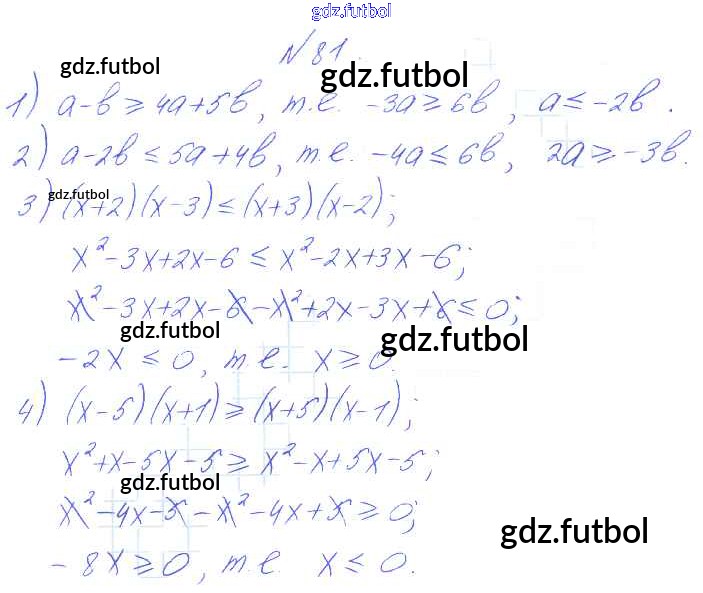 gdz.futbol
№81.
gdz.futbol gdz.futbol
1) a-b ≥ 4a+5b, т.е. -3a ≥ 6b, a ≤ -2b.
2) a-2b ≤ 5a+4b, т.е. -4a ≤ 6b, 2a ≥ -3b.
gdz.futbol
3) (x+2)(x-3) ≤ (x+3)(x-2);
x²-3x+2x-6 ≤ x²-2x+3x-6;
x²-3x+2x-6-x²+2x-3x+6 ≤ 0;
gdz.futbol gdz.futbol
-2x ≤ 0, т.е. x ≥ 0.
4) (x-5)(x+1) ≥ (x+5)(x-1);
x²+x-5x-5 ≥ x²-x+5x-5;
gdz.futbol
x²-4x-5-x²-4x+5 ≥ 0;
gdz.futbol
-8x ≥ 0, т.е. x ≤ 0.